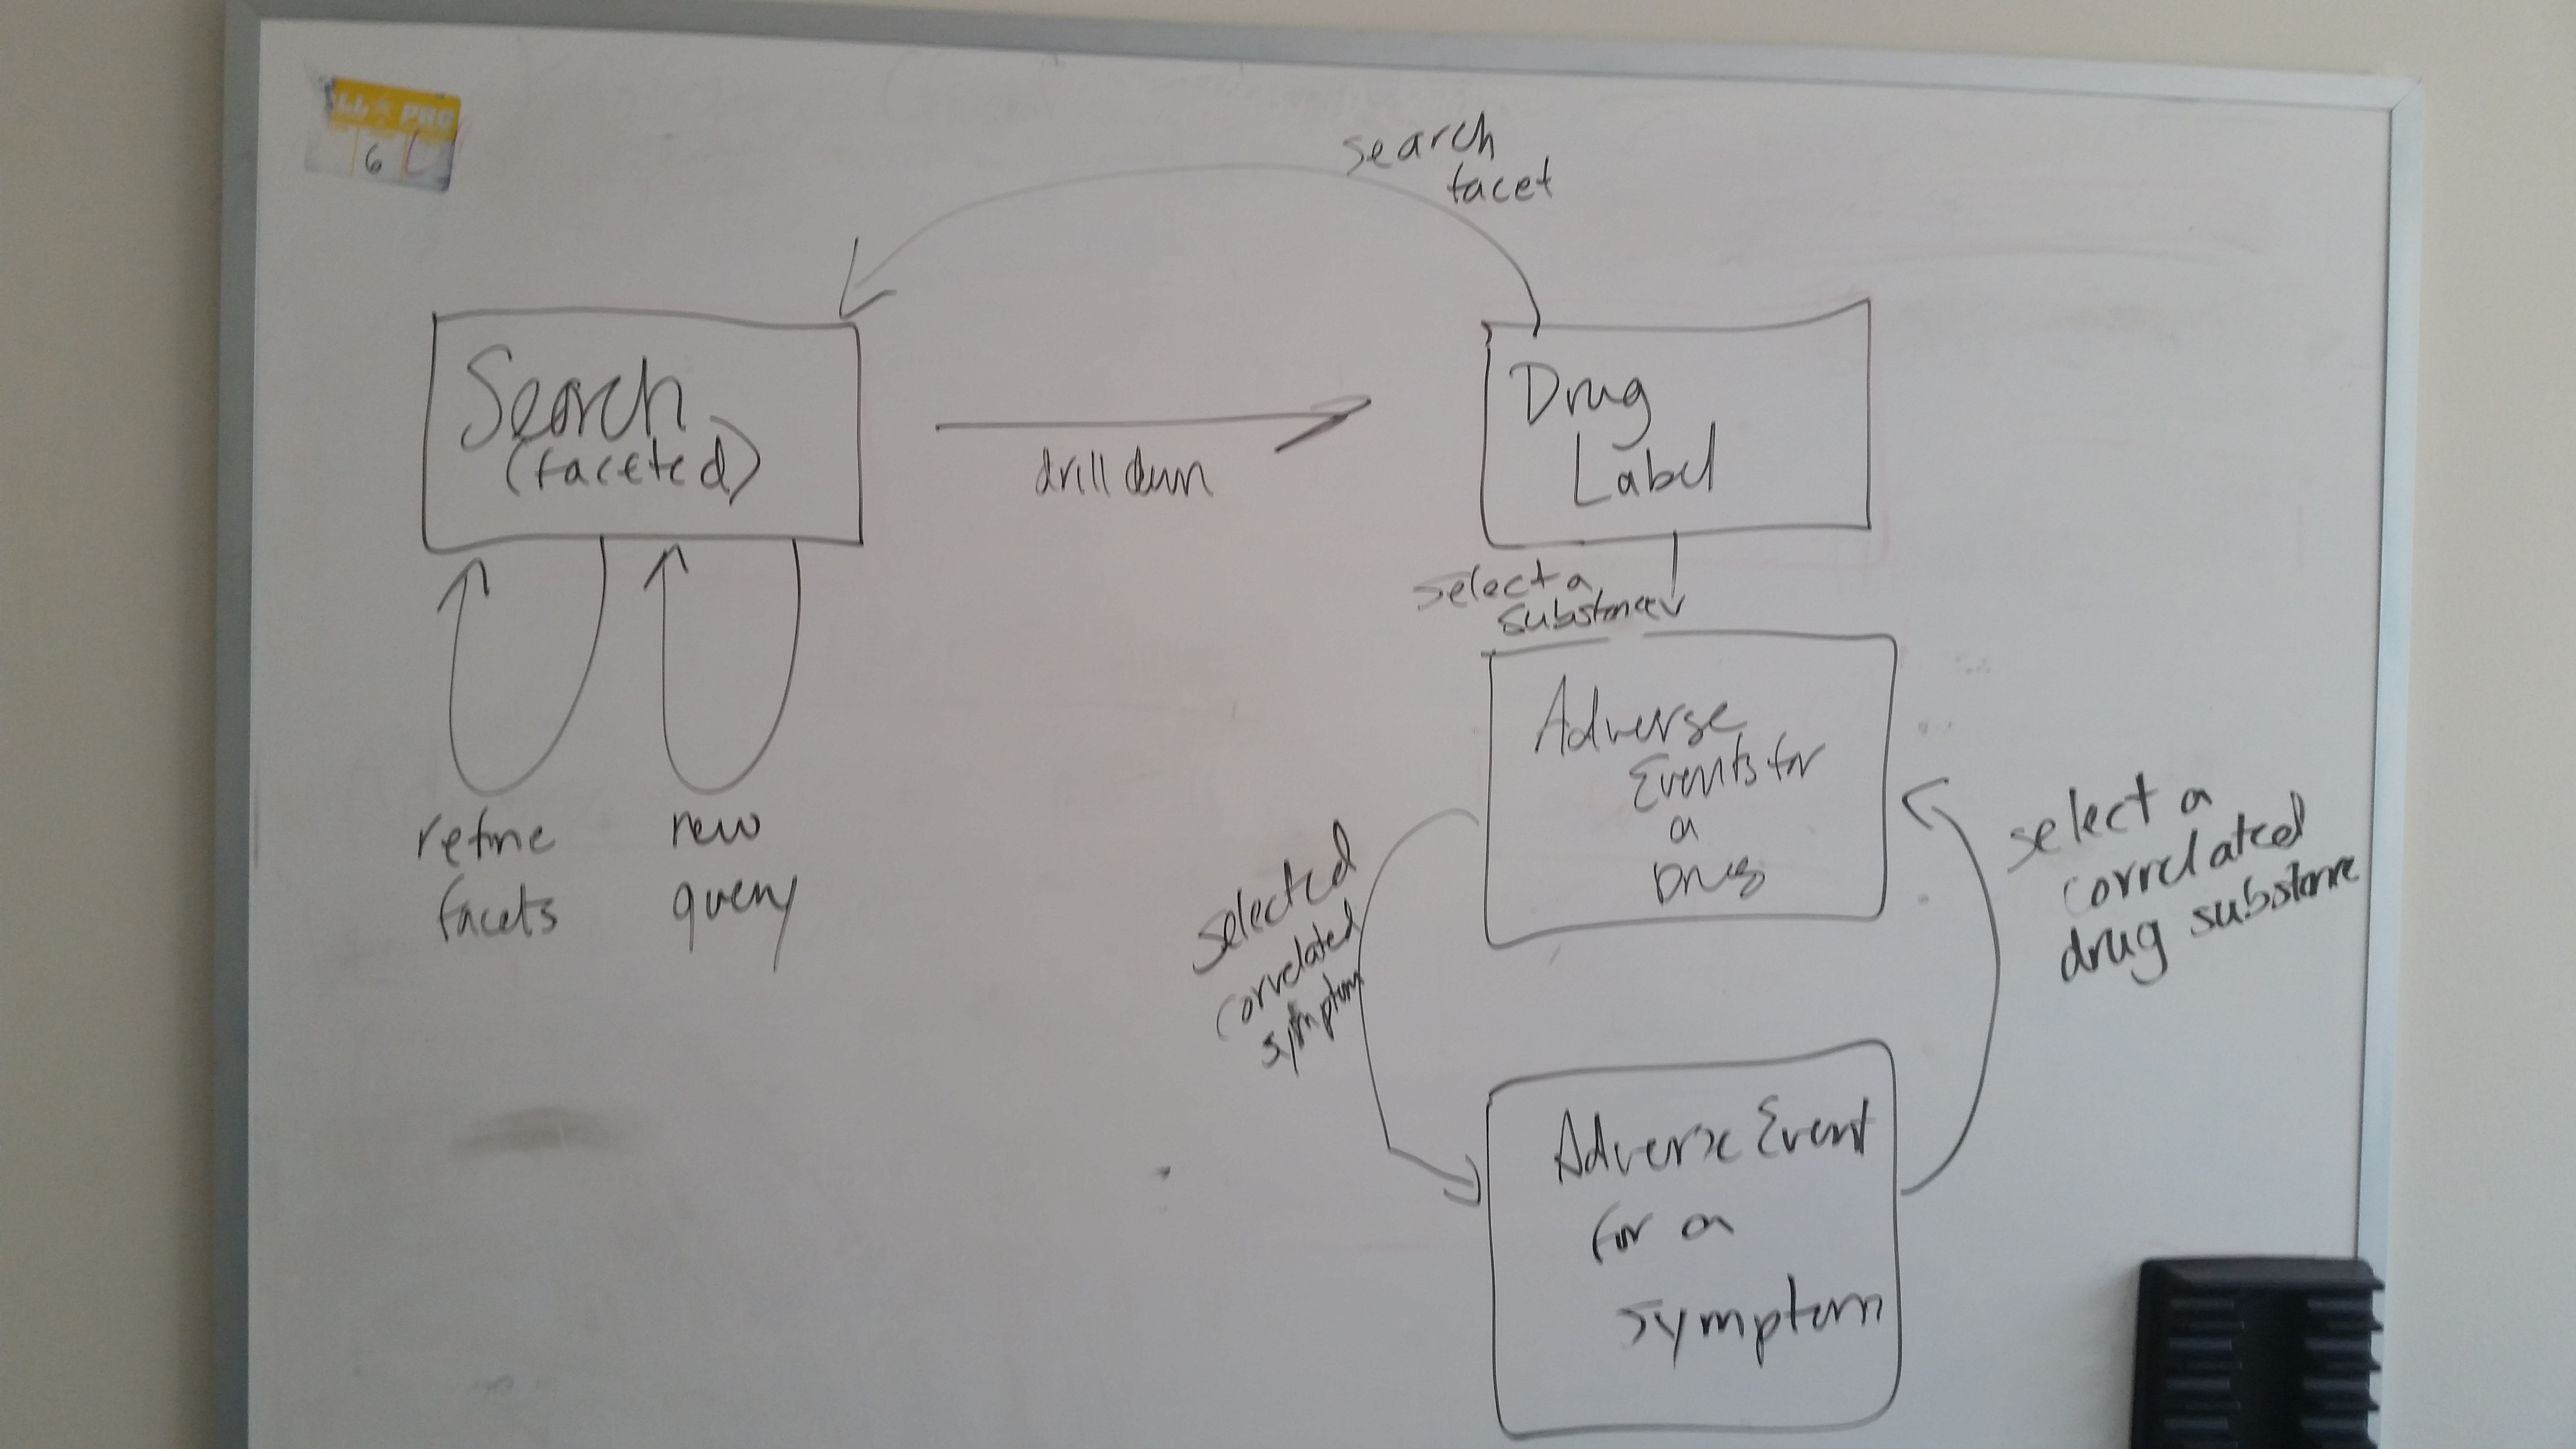 LL★PRO
6
search
facet
Search
(faceted)
drill down
Drug
Label
select a
substance
refine
facets
new
query
Adverse
Events for
a
Drug
selected
correlated
symptom
select a
correlated
drug substance
Adverse Event
for a
symptom